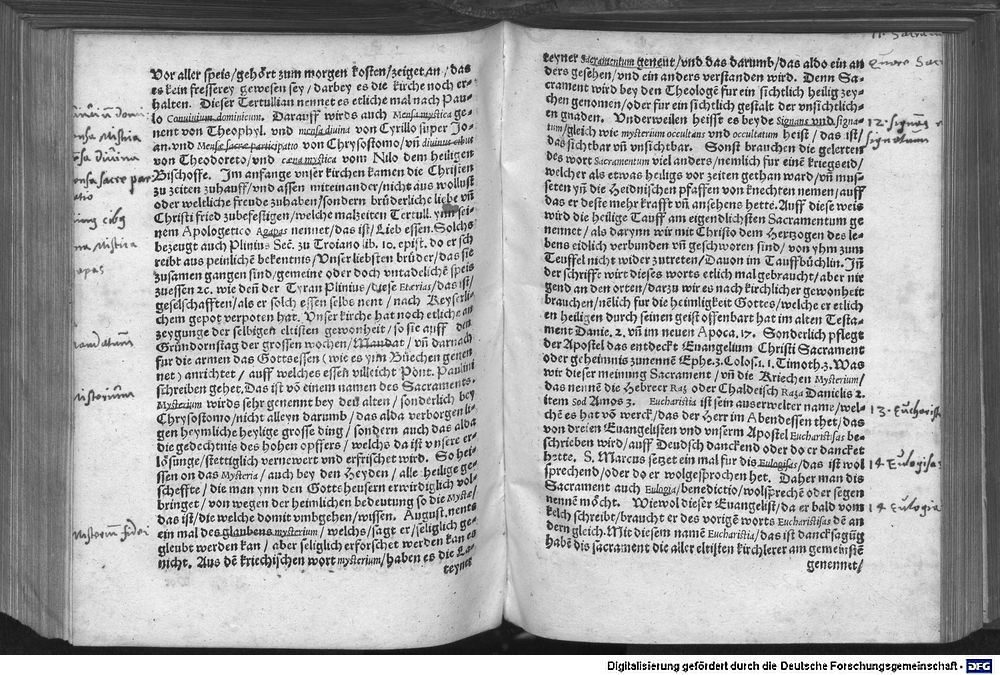 Vor aller speis/gehört zum morgen kosten/zeiget an/das
es kein fresserey gewesen sey/darbey es die kirche noch er-
halten. Dieser Tertullian nennet es etliche mal nach Pau-
lo Conuiuium dominicum. Darauff wirds auch Mensa mystica ge-
nent von Theophyl. vnd mensa diuina von Cyrillo süper Jo-
an. vnd Mensæ sacræ participatio von Chrysostomo/vñ diuinus cibus
von Theodoreto/vnd cæna mystica vom Nilo dem heiligen
Bischoffe. Im anfange vnser kirchen kamen die Christen
zu zeiten zuhauff/vnd assen miteinander/nicht aus wollust
oder weltliche freude zuhaben/sondern brüderliche liebe vñ
Christi fried zubefestigen/welche malzeiten Tertull. ynn sei-
nem Apologetico Agapas nennet/das ist/Lieb essen. Solchs
bezeugt auch Plinius Sec. zu Troiano lib. 10. epist. do er sch
reibt aus peinliche bekentnis/Vnser liebsten brüder/das sie
zusamen gangen sind/gemeine oder doch vntadelichē speis
zuessen ꝛc. wie deñ der Tyran Plinius/diese Etærias/das ist/
geselschafften/als er solch essen selbs nent/nach Keyserli-
chem gepot verpoten hat. Vnser kirche hat noch etliche an
zeygunge der selbigen eltisten gewonheit/so sie auff den
Gründornstag der grossen wochen/Mandat/vñ darnach
fur die armen das Gottsessen (wie es ynn Büechen genen
net) anrichtet/auff welches essen villeicht Pont. Paulini
schreiben gehet. Das ist võ einem namen des Sacraments.
Mysterium wirds sehr genennt bey den alten/sonderlich bey
Chrysostomo/nicht alleyn darumb/das alda verborgen li-
gen heymliche heylige grosse ding/sondern auch das alda
die gedechtnis des hohen opffers/welchs da ist vnsere er-
lösunge/stettiglich vernewert vnd erfrischet wird. So hei-
ssen on das Mysteria/auch bey den Heyden/alle heilige ge-
scheffte/die man ynn den Gottsheusern erwirdiglich vol-
bringet/von wegen der heimlichen bedeutung so die Mystæ/
das ist/die welche domit vmbgehen/wissen. August. nents
ein mal des glaubens mysterium/welchs/sagt er/seliglich ge-
gleubt werden kan/aber seliglich erforschet werden kan es
nicht. Aus dē kriechischen wort mysterium/haben es die La-
teyner
Mensa Mistica
Mensa Divina
Mensa sacre par
cibus
Mistica
Mandatum
Misterium
Misterium fidei
teyner Sacramentum genent/vnd das darumb/das aldo ein an
ders gesehen/vnd ein anders verstanden wird. Denn Sa-
crament wird bey den Theologē fur ein sichtlich heilig zey-
chen genomen/oder fur ein sichtlich gestalt der vnsichtlich-
en gnaden. Vnderweilen heisse es beyde Signans vnd signa-
tum/gleich wie mysterium occultans vnd occultatum heist/das ist/
das sichtbar vñ vnsichtbar. Sonst brauchen die gelerten
des wort Sacramentum viel anders/nemlich fur einē kriegseid/
welcher als etwas heiligs vor zeiten gethan ward/vñ mus-
seten yñ die Heidnischen pfaffen von knechten nemen/auff
das er deste mehr krafft vñ ansehens hette. Auff diese weis
wird die heilige Tauff am eigendlichsten Sacramentum ge
nennet/als darynn wir mit Christo dem Hertzogen des le-
bens eidlich verbunden vñ geschworen sind/von yhm zum
Teuffel nicht wider zutreten/Dauon im Tauffbüchlin. Iñ
der schrifft wirt dieses worts etlich mal gebraucht/aber nir
gend an den orten/darzu wir es nach kirchlicher gewonheit
brauchen/nēlich fur die heimligkeit Gottes/welche er etlich
en heiligen durch seinen geist offenbart hat im alten Testa-
ment Danie. 2. vñ im neuen Apoca. 17. Sonderlich pflegt
der Apostel das entdeckt Euangelium Christi Sacrament
oder geheimnis zunennē Ephe. 3. Colos. 1. 1. Timoth. 3. Was
wir dieser meinung Sacrament/vñ die Kriechen Mysterium/
das nennē die Hebreer Raz oder Chaldeisch Raza Danielis 2.
item Sod Amos 3. Eucharistia ist sein auserwelter name/wel-
chē es hat võ werck/das der Herr im Abendessen thet/das
von dreien Euangelisten vnd vnserm Apostel Eucharistisas be-
schrieben wird/auff Deudsch danckend oder do er dancket
hette. S. Marcus setzet ein mal fur dis Eulogisas/das ist wol
sprechend/oder do er wolgesprochen het. Daher man dis
Sacrament auch Eulogia/benedictio/wolsprechē oder segen
nennē möcht. Wiewol dieser Euangelist/da er bald vom
kelch schreibt/braucht er des vorigē worts Eucharistisas dē an
dern gleich. Mit diesem namē Eucharistia/das ist dancksagūg
habē dis sacrament die aller eltisten kirchlerer am gemeinstē
genennet/
12. signans
signatum
13. Eucharist
14. Eulogisas
14 Eulogia
Digitalisierung gefördert durch die Deutsche Forschungsgemeinschaft - DFG